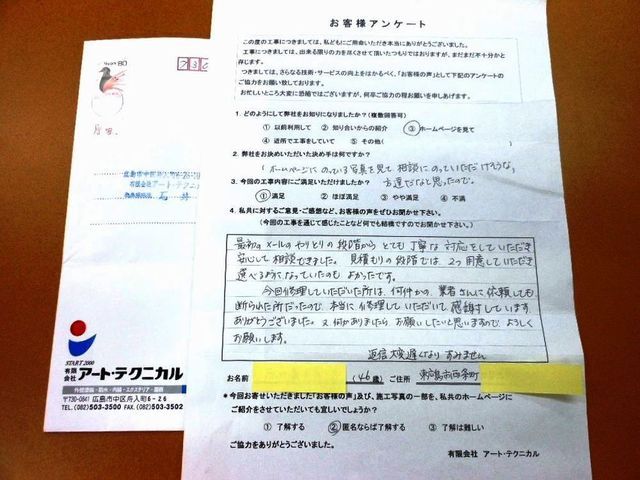 お客様アンケート
この度の工事につきましては、私どもにご用命いただき本当にありがとうございました。
工事につきましては、出来る限りの力を尽くさせて頂いたつもりではおりますが、まだまだ不十分かと
存じます。
つきましては、さらなる技術・サービスの向上をはかるべく、「お客様の声」として下記のアンケートの
ご協力をお願い致しております。
お忙しいところ大変に恐縮ではございますが、何卒ご協力の程お願いを申しあげます。
1. どのようにして弊社をお知りになりましたか？（複数回答可）
①以前利用して ②知り合いからの紹介 ③ホームページを見て
④近所で工事をしていて ⑤その他(
2. 弊社をお決めいただいた決め手は何ですか？
ホームページにのっている写真を見て相談にのっていただけそうな
方達だなと思ったので。
3. 今回の工事内容にご満足いただけましたか？
①満足 ②ほぼ満足 ③やや満足 ④不満
4. 私共に対するご意見・ご感想など、お客様の声をぜひお聞かせ下さい。
（今回の工事を通じて感じたことなど何でも結構ですのでお聞かせ下さい。）
最初のメールのやりとりの段階からとても丁寧な対応をしていただき
安心して相談できました。見積もりの段階では、2つ用意していただき
選べるようになっていたのもよかったです。
今回修理していただいた所は、何件かの業者さんに依頼しても
断られた所だったので、本当に修理していただいて感謝しています。
ありがとうございました。又何かありましたらお願いしたいと思いますので、よろしく
お願いします。
返信大変遅くなりすみません
お名前 (46歳) ご住所 東広島市西条町
*今回お寄せいただきました「お客様の声」及び、施工写真の一部を、私共のホームページに
ご紹介をさせていただいても宜しいでしょうか？
1 了解する ②匿名ならば了解する 3 了解は難しい
ご協力をありがとうございました。
有限会社 アート・テクニカル
80
730
広島市中区舟入町6-26-10
有限会社アート・テクニ
START2000
有限会社 アート・テクニカル
外壁塗装・防水・内装・エクステリア・造園
〒730-0841 広島市中区舟入町6-26
TEL.(082)503-3500 FAX.(082)503-3502